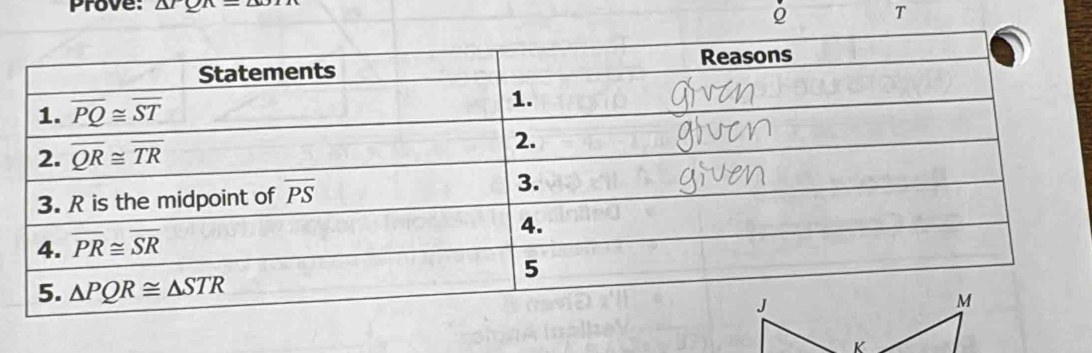 Prove: ΔPQR ≅ ΔSTR
Q T
Statements Reasons
1. PQ ≅ ST 1. given
2. QR ≅ TR 2. given
3. R is the midpoint of PS 3. given
4. PR ≅ SR 4.
5. ΔPQR ≅ ΔSTR 5
J M
K